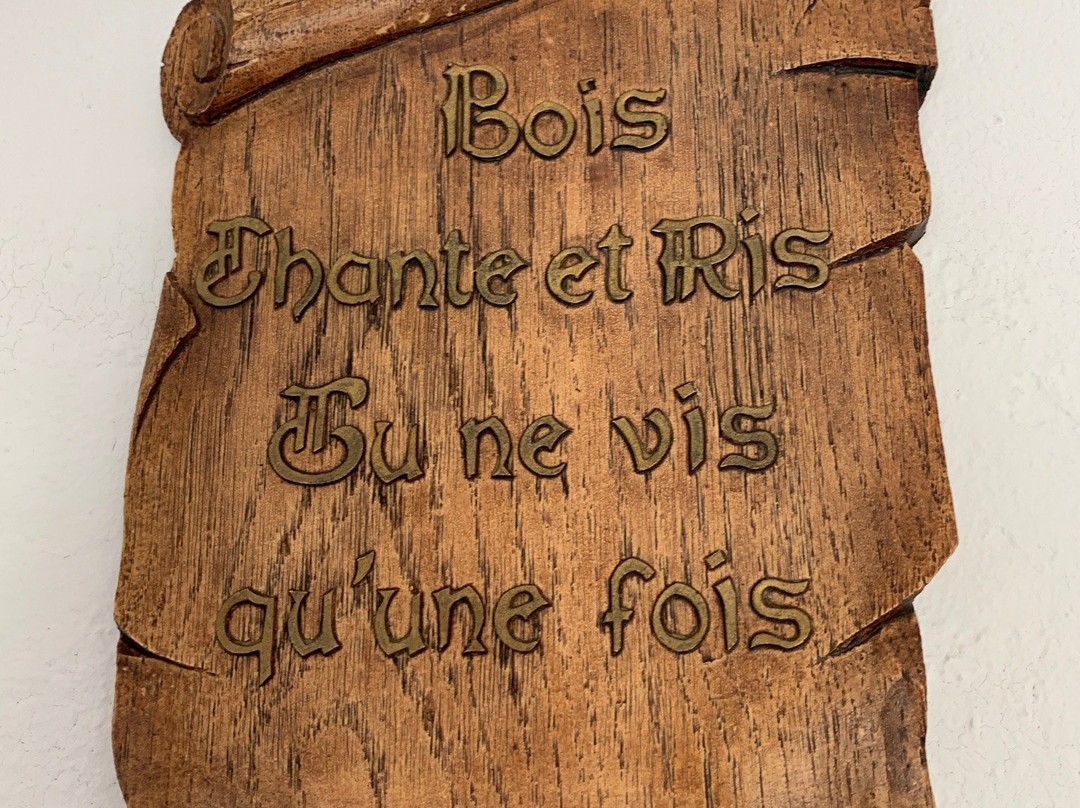 Bois
Chante et Ris
Tu ne vis
qu'une fois